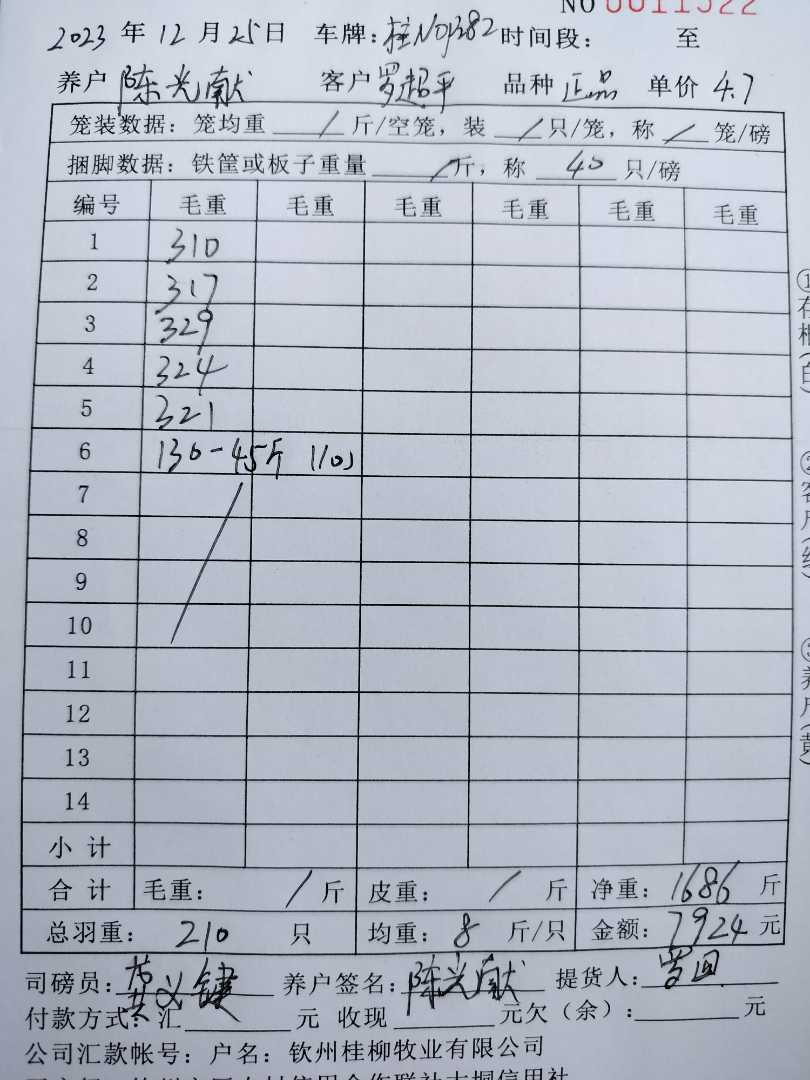 NO 0011522
2023 年 12 月 25 日 车牌:桂N01382 时间段: 至
养户 陈光献 客户 罗超平 品种 正品 单价 4.7
笼装数据: 笼均重 / 斤/空笼, 装 / 只/笼, 称 / 笼/磅
捆脚数据: 铁筐或板子重量 / 斤, 称 40 只/磅
编号 毛重 毛重 毛重 毛重 毛重 毛重
1 310
2 317
3 329
4 324
5 321
6 130-45斤 (10)
7
8
9
10
11
12
13
14
小 计
合 计 毛重: / 斤 皮重: / 斤 净重: 1686 斤
总羽重: 210 只 均重: 8 斤/只 金额: 7924 元
司磅员: 黄义键 养户签名: 陈光献 提货人: 罗
付款方式: 汇 元 收现 元欠(余): 元
公司汇款帐号: 户名: 钦州桂柳牧业有限公司